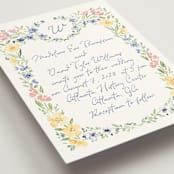 W
Madeleine Rae Thompson
and
Daniel Tyler Williams
invite you to their wedding
August 7, 2028 at 5 pm
Atlanta History Center
Atlanta, GA
Reception to follow